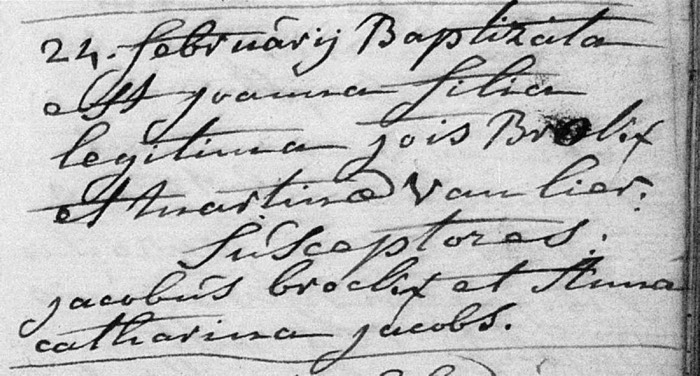 24. februarij Baptizata
est joanna filia
legitima jois Brockx
et martinæ van lier.
Susceptores:
jacobus brockx et Anna
catharina jacobs.